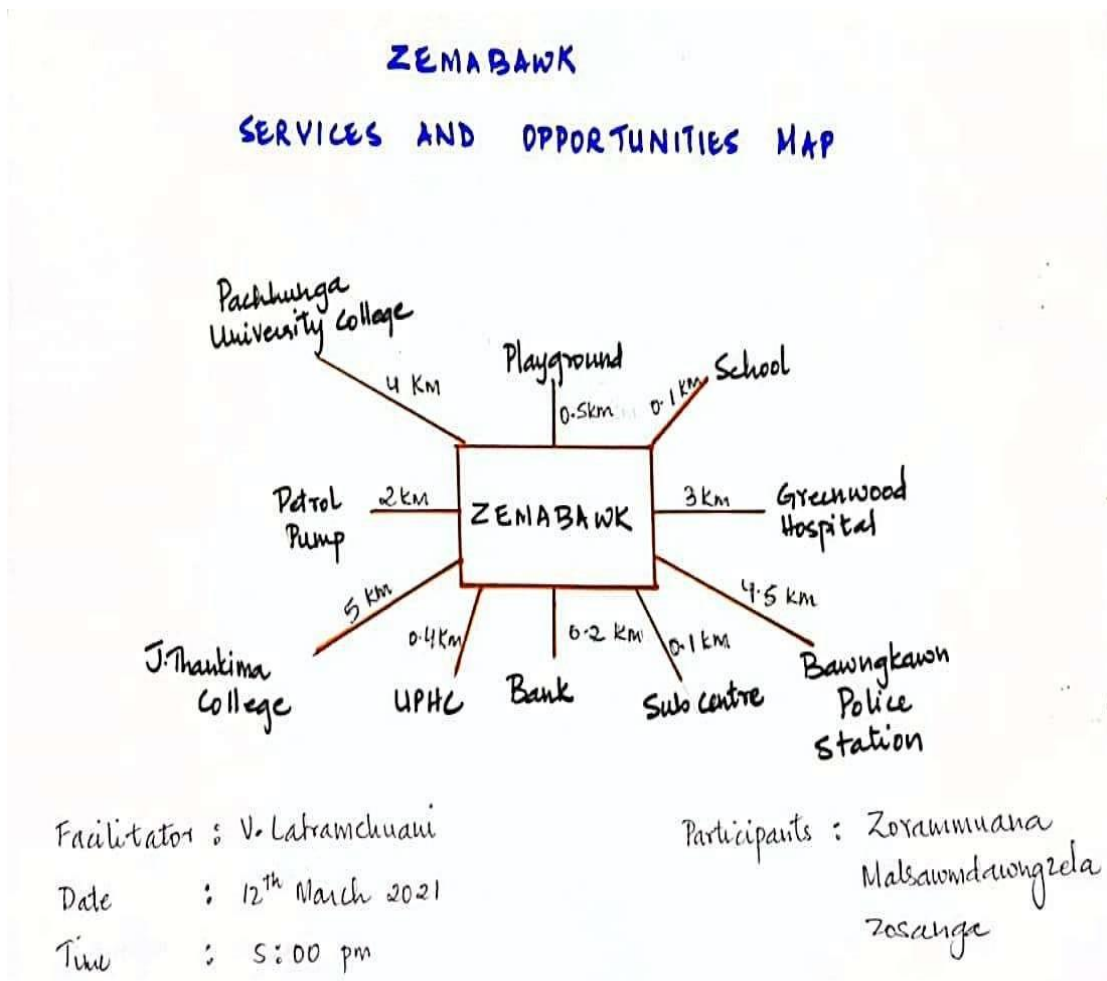 ZEMABAWK
SERVICES AND OPPORTUNITIES MAP
Pachhunga
University College
4 KM
Playground
0.5km
School
0.1km
Petrol
Pump
2km
ZEMABAWK
3km
Greenwood
Hospital
5 km
J.Thankima
College
0.4km
UPHC
0.2 km
Bank
0.1km
Sub centre
4.5 km
Bawngkawn
Police
Station
Facilitator : V. Lalramchuani
Date : 12th March 2021
Time : 5:00 pm
Participants : Zorammuana
Malsawmdawngzela
Zosanga